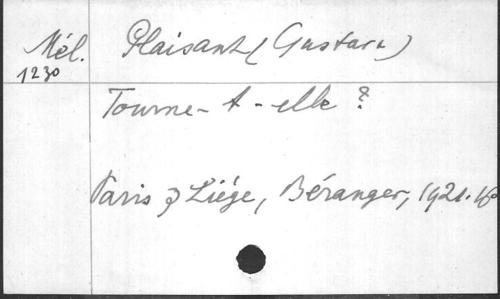 Mél. Plaisant (Gustave)
1230
Tourne-t-elle ?
Paris & Liége, Béranger, 1921. 16o